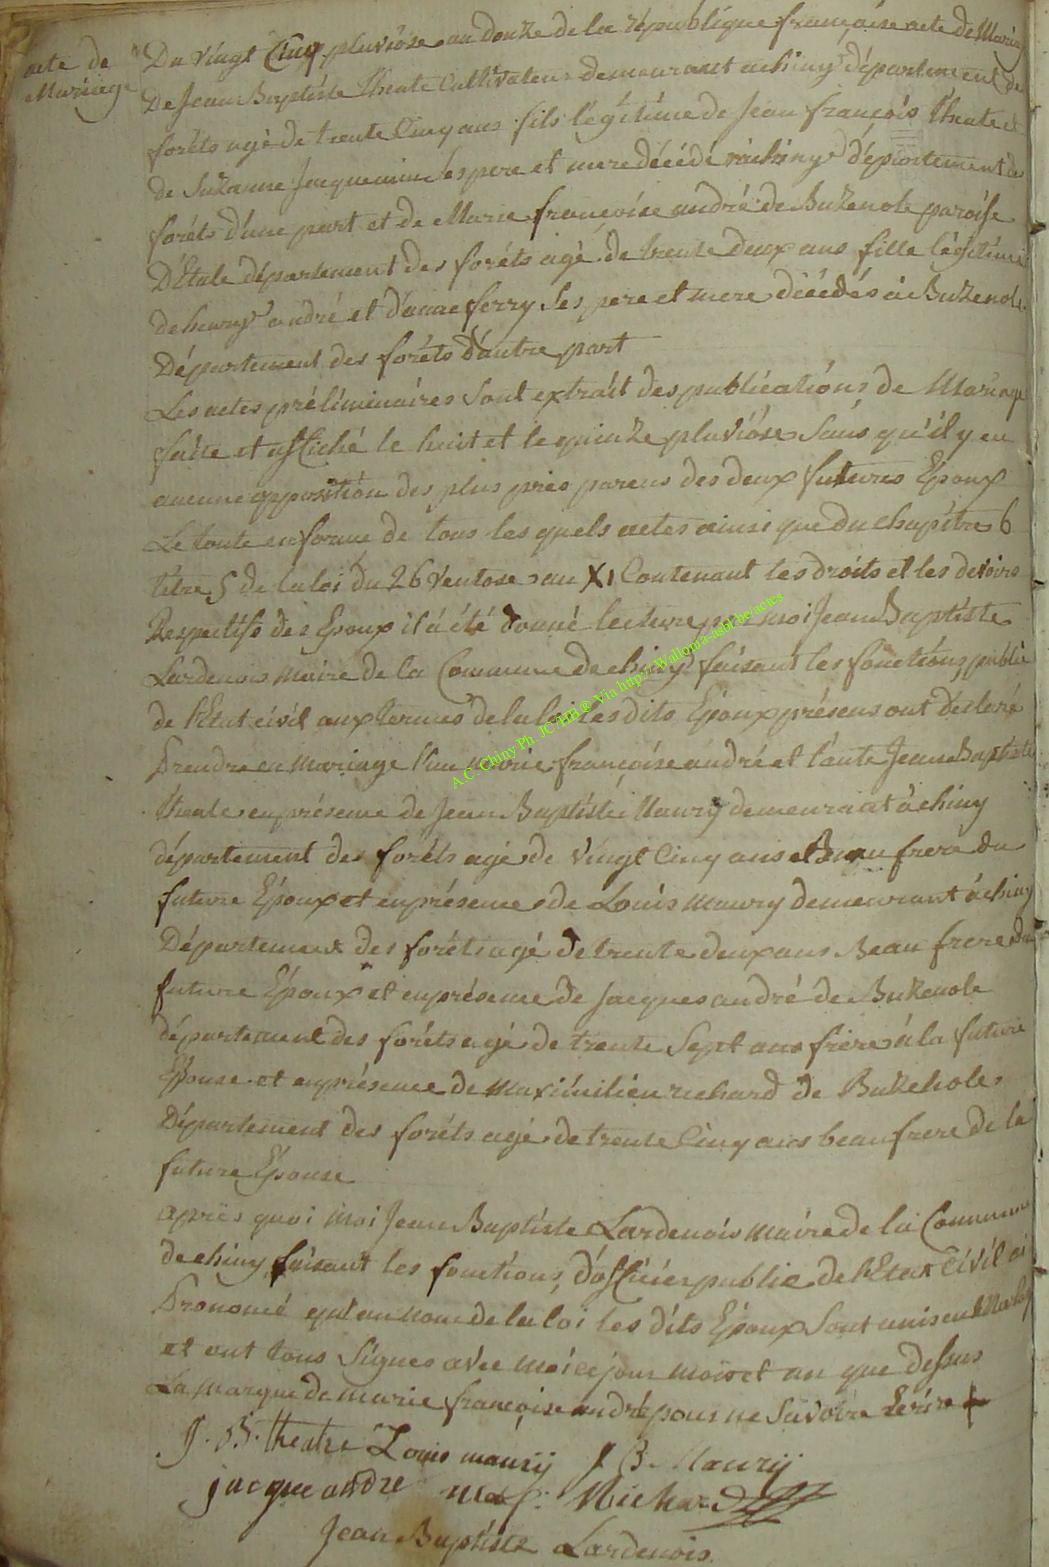 acte de
Mariage
Du vingt Cinq pluviôse an douze de la république française acte de Mariage
De Jean Baptiste theate Cultivateur demeurant achiny département de
forêts agé de trente Cinq ans fils légitime de Jean françois theate et
de Suzanne Jacquemin ses pere et mere décédé àchiny département des
forêts d'une part et de Marie françoise andré de Buzenole paroisse
D'Etale département des forêts agé de trente deux ans fille légitime
de henry andré et d'anne ferry ses pere et mere décédés à Buzenole
Département des forêts d'autre part
Les actes préliminaires sont extrait des publications de Mariage
faite et affiché le huit et le quinze pluviôse sans qu'il y eu
aucune opposition des plus près parens des deux futures Epoux
Le toute en forme de tous les quels actes ainsi que du chapitre 6
titre 5 de la loi du 26 Ventose an XI Contenant les droits et les devoirs
Respectifs des Epoux il a été donné lecture par moi Jean Baptiste
Lardenois maire de la Commune de chiny faisant les fonctions public
de l'Etat civil aux termes de la loi Les dits Epoux présens ont déclaré
Prendre en mariage l'un Marie françoise andré et l'aute Jean Baptiste
theate en présence de Jean Baptiste Maury demeurant àchiny
département des forêts agé de vingt Cinq ans Beau frere du
future Epoux et en présence de Louis Maury demeurant àchiny
Département des forêts agé de trente deux ans Beau frere du
future Epoux et en présence de Jacques andré de Buzenole
département des forêts agé de trente Sept ans frère à la future
Epouse et en présence de Maximilien richard de Buzenole
Département des forêts agé de trente Cinq ans beau frere de la
future Epouse
après quoi moi Jean Baptiste Lardenois maire de la Commune
de chiny faisant les fonctions d'officier public de l'Etat Civil ai
Prononcé qu'au nom de la loi les dits Epoux Sont unis en
et ont tous Signes avec moi ce jour mois et an que dessus
La marque de marie françoise andré pour ne Savoir Ecrire +
J. B. theatre Louis maurij J B. Maurij
jacque andre Richard
Jean Baptiste Lardenois
A.C. Chiny Ph. JC/HH @ Via http://Wallonia-asbl.be/actes